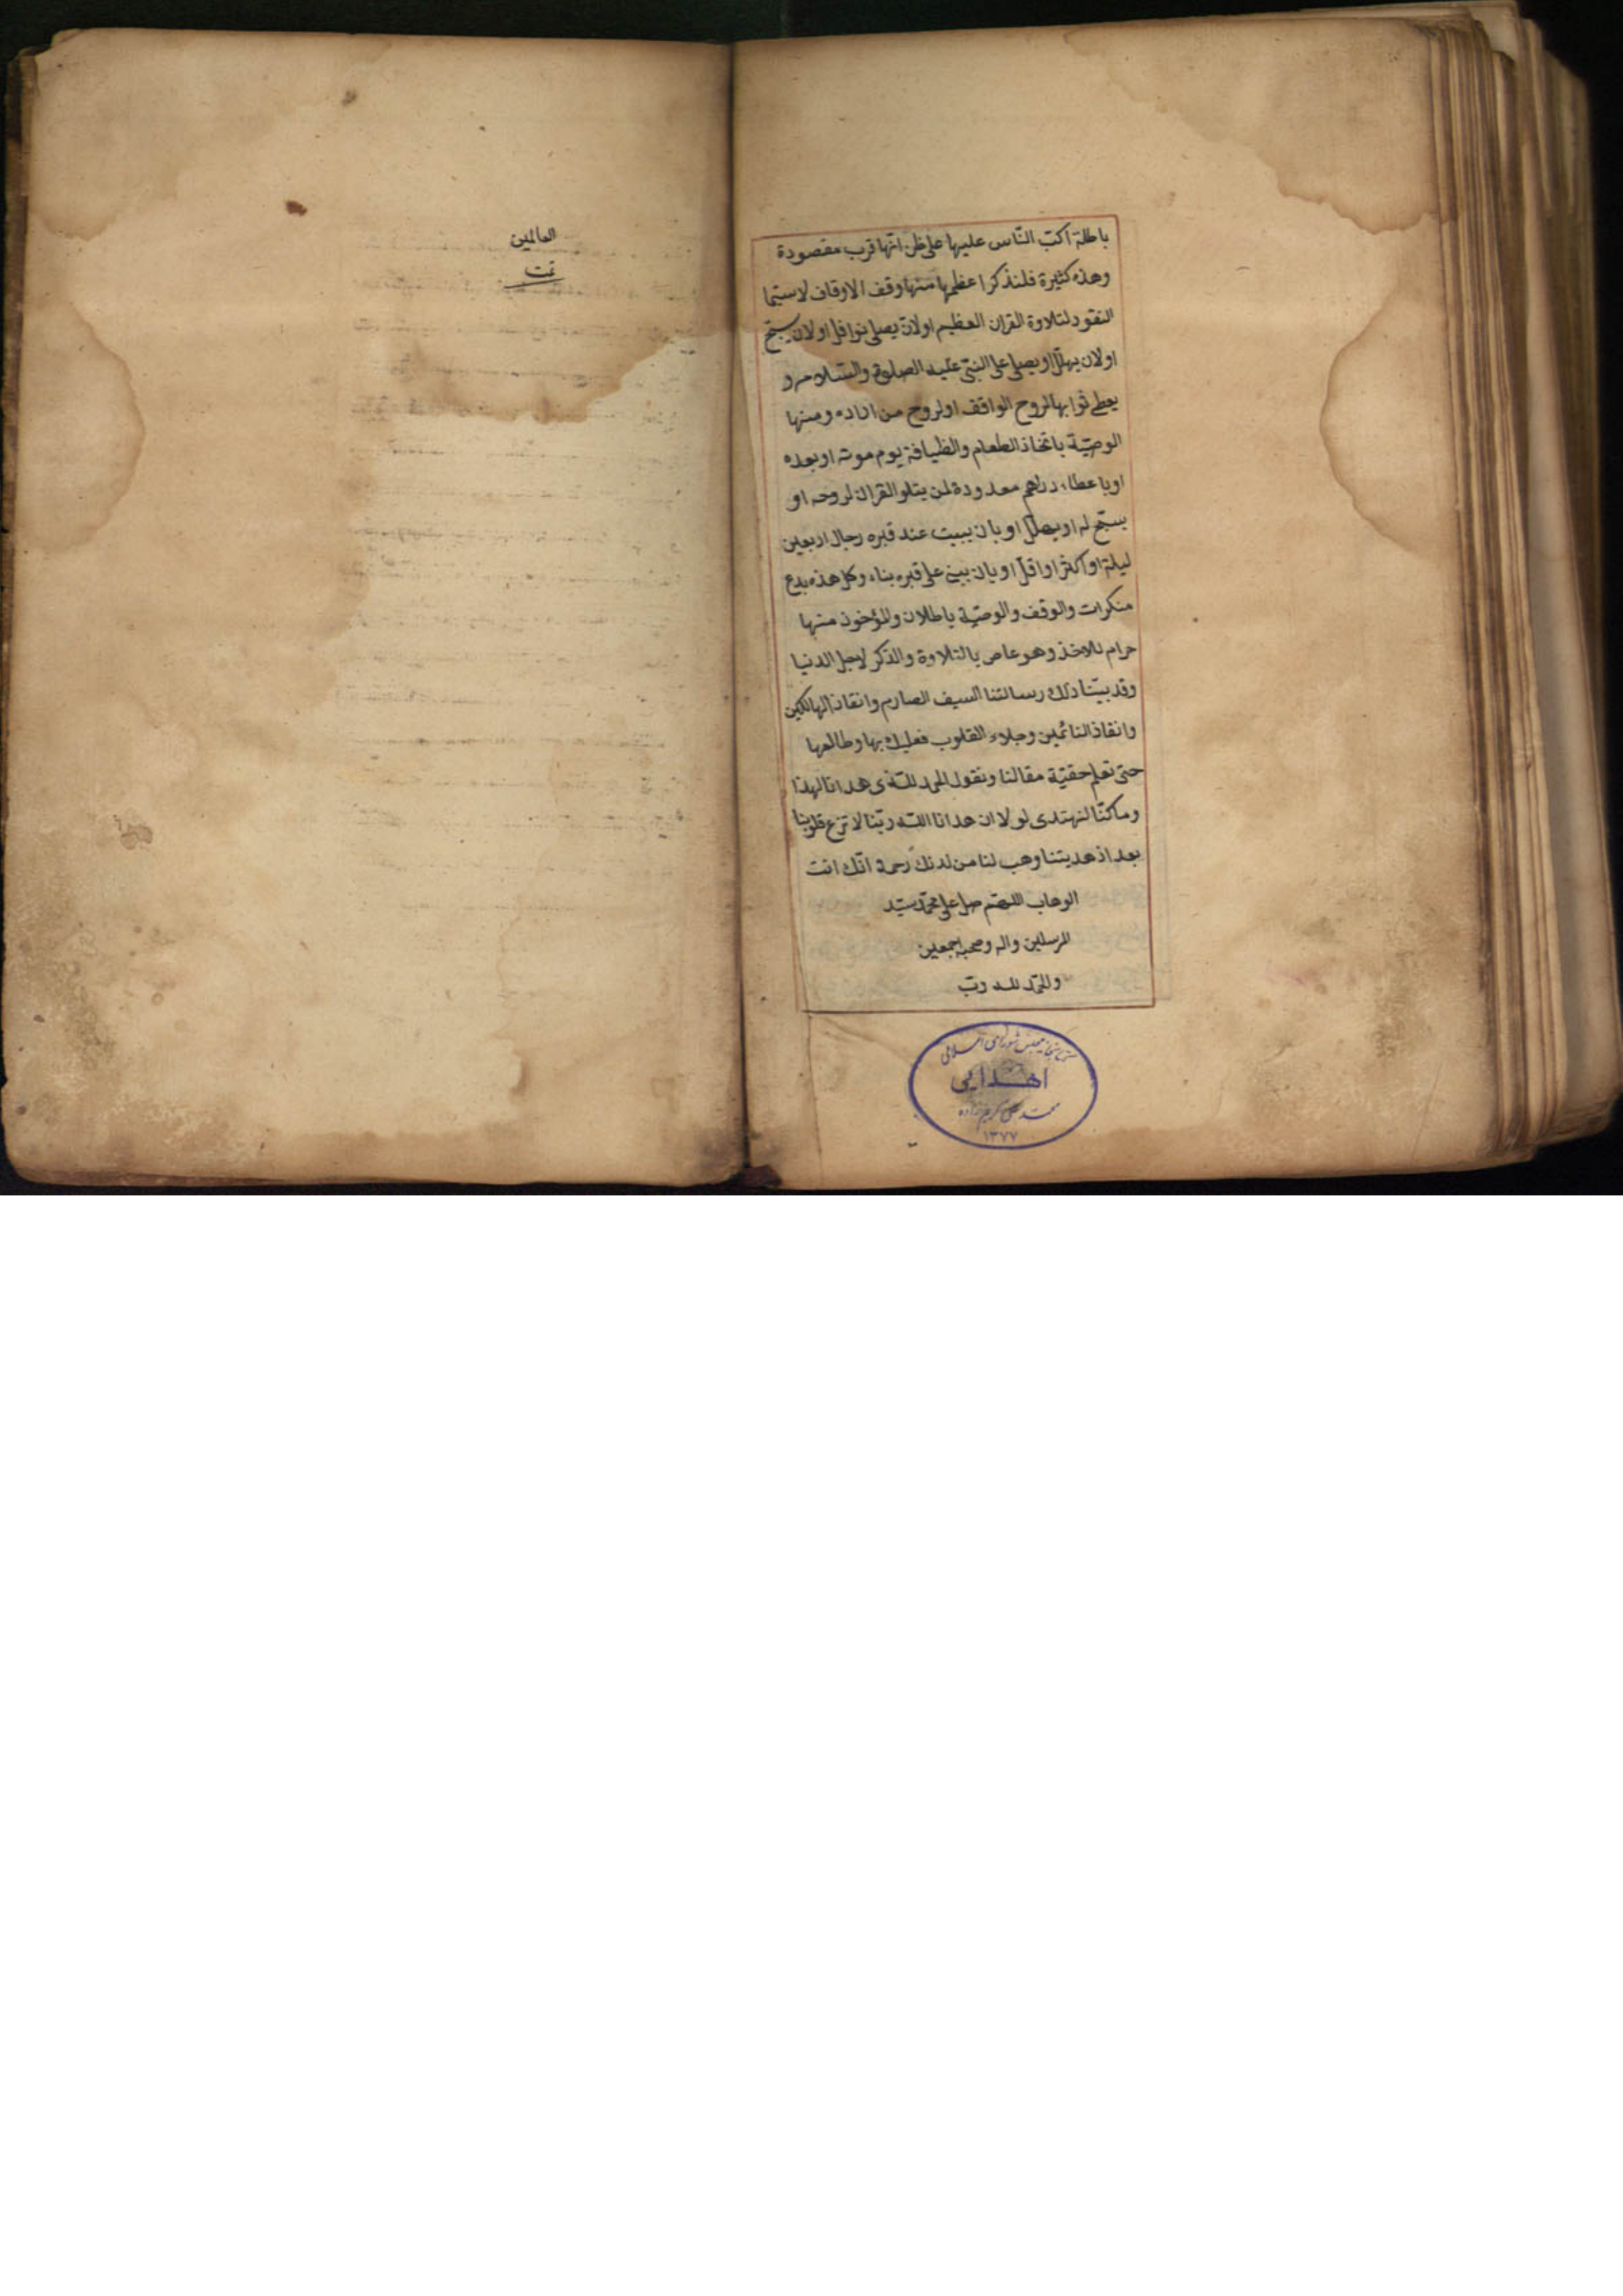 باطلة اكبّ النّاس عليها على ظن انّها قرب مقصودة
وهذه كثيرة فلنذكر اعظمها منها وقف الاوقاف لاسيّما
النقود لتلاوة القران العظيم اولان يصلى نوافل اولان يسبّح
اولان يهلّل او يصلى على النبىّ عليه الصلوة والسّلام و
يعطى ثوابها لروح الواقف اولروح من اراده ومنها
الوصيّة باتّخاذ الطعام والظيافة يوم موته او بعده
او باعطاء دراهم معدودة لمن يتلو القران لروحه او
يسبّح له او يهلّل او بان يبيت عند قبره رجال اربعين
ليلة او اكثر او اقلّ او بان يبنى على قبره بناء وكل هذه بدع
منكرات والوقف والوصيّة باطلان والمؤخوذ منها
حرام للاخذ وهو عاص بالتلاوة والذكر لاجل الدنيا
وقد بيّنا ذلك رسالتنا السيف الصارم وانقاذ الهالكين
وانقاذ النائمين وجلاء القلوب فعليك بها وطالعها
حتى تعلم حقيّة مقالنا وتقول الحمد للّه الذى هدانا لهذا
وما كنّا لنهتدى لولا ان هدانا اللّه ربّنا لا تزغ قلوبنا
بعد اذ هديتنا وهب لنا من لدنك رحمة انّك انت
الوهاب اللهم صل على محمّد سيّد
المرسلين واله وصحبه اجمعين
والحمد لله ربّ
كتابخانه مجلس شورای اسلامی
اهدایی
۱۳۷۷
العالمين
تمت